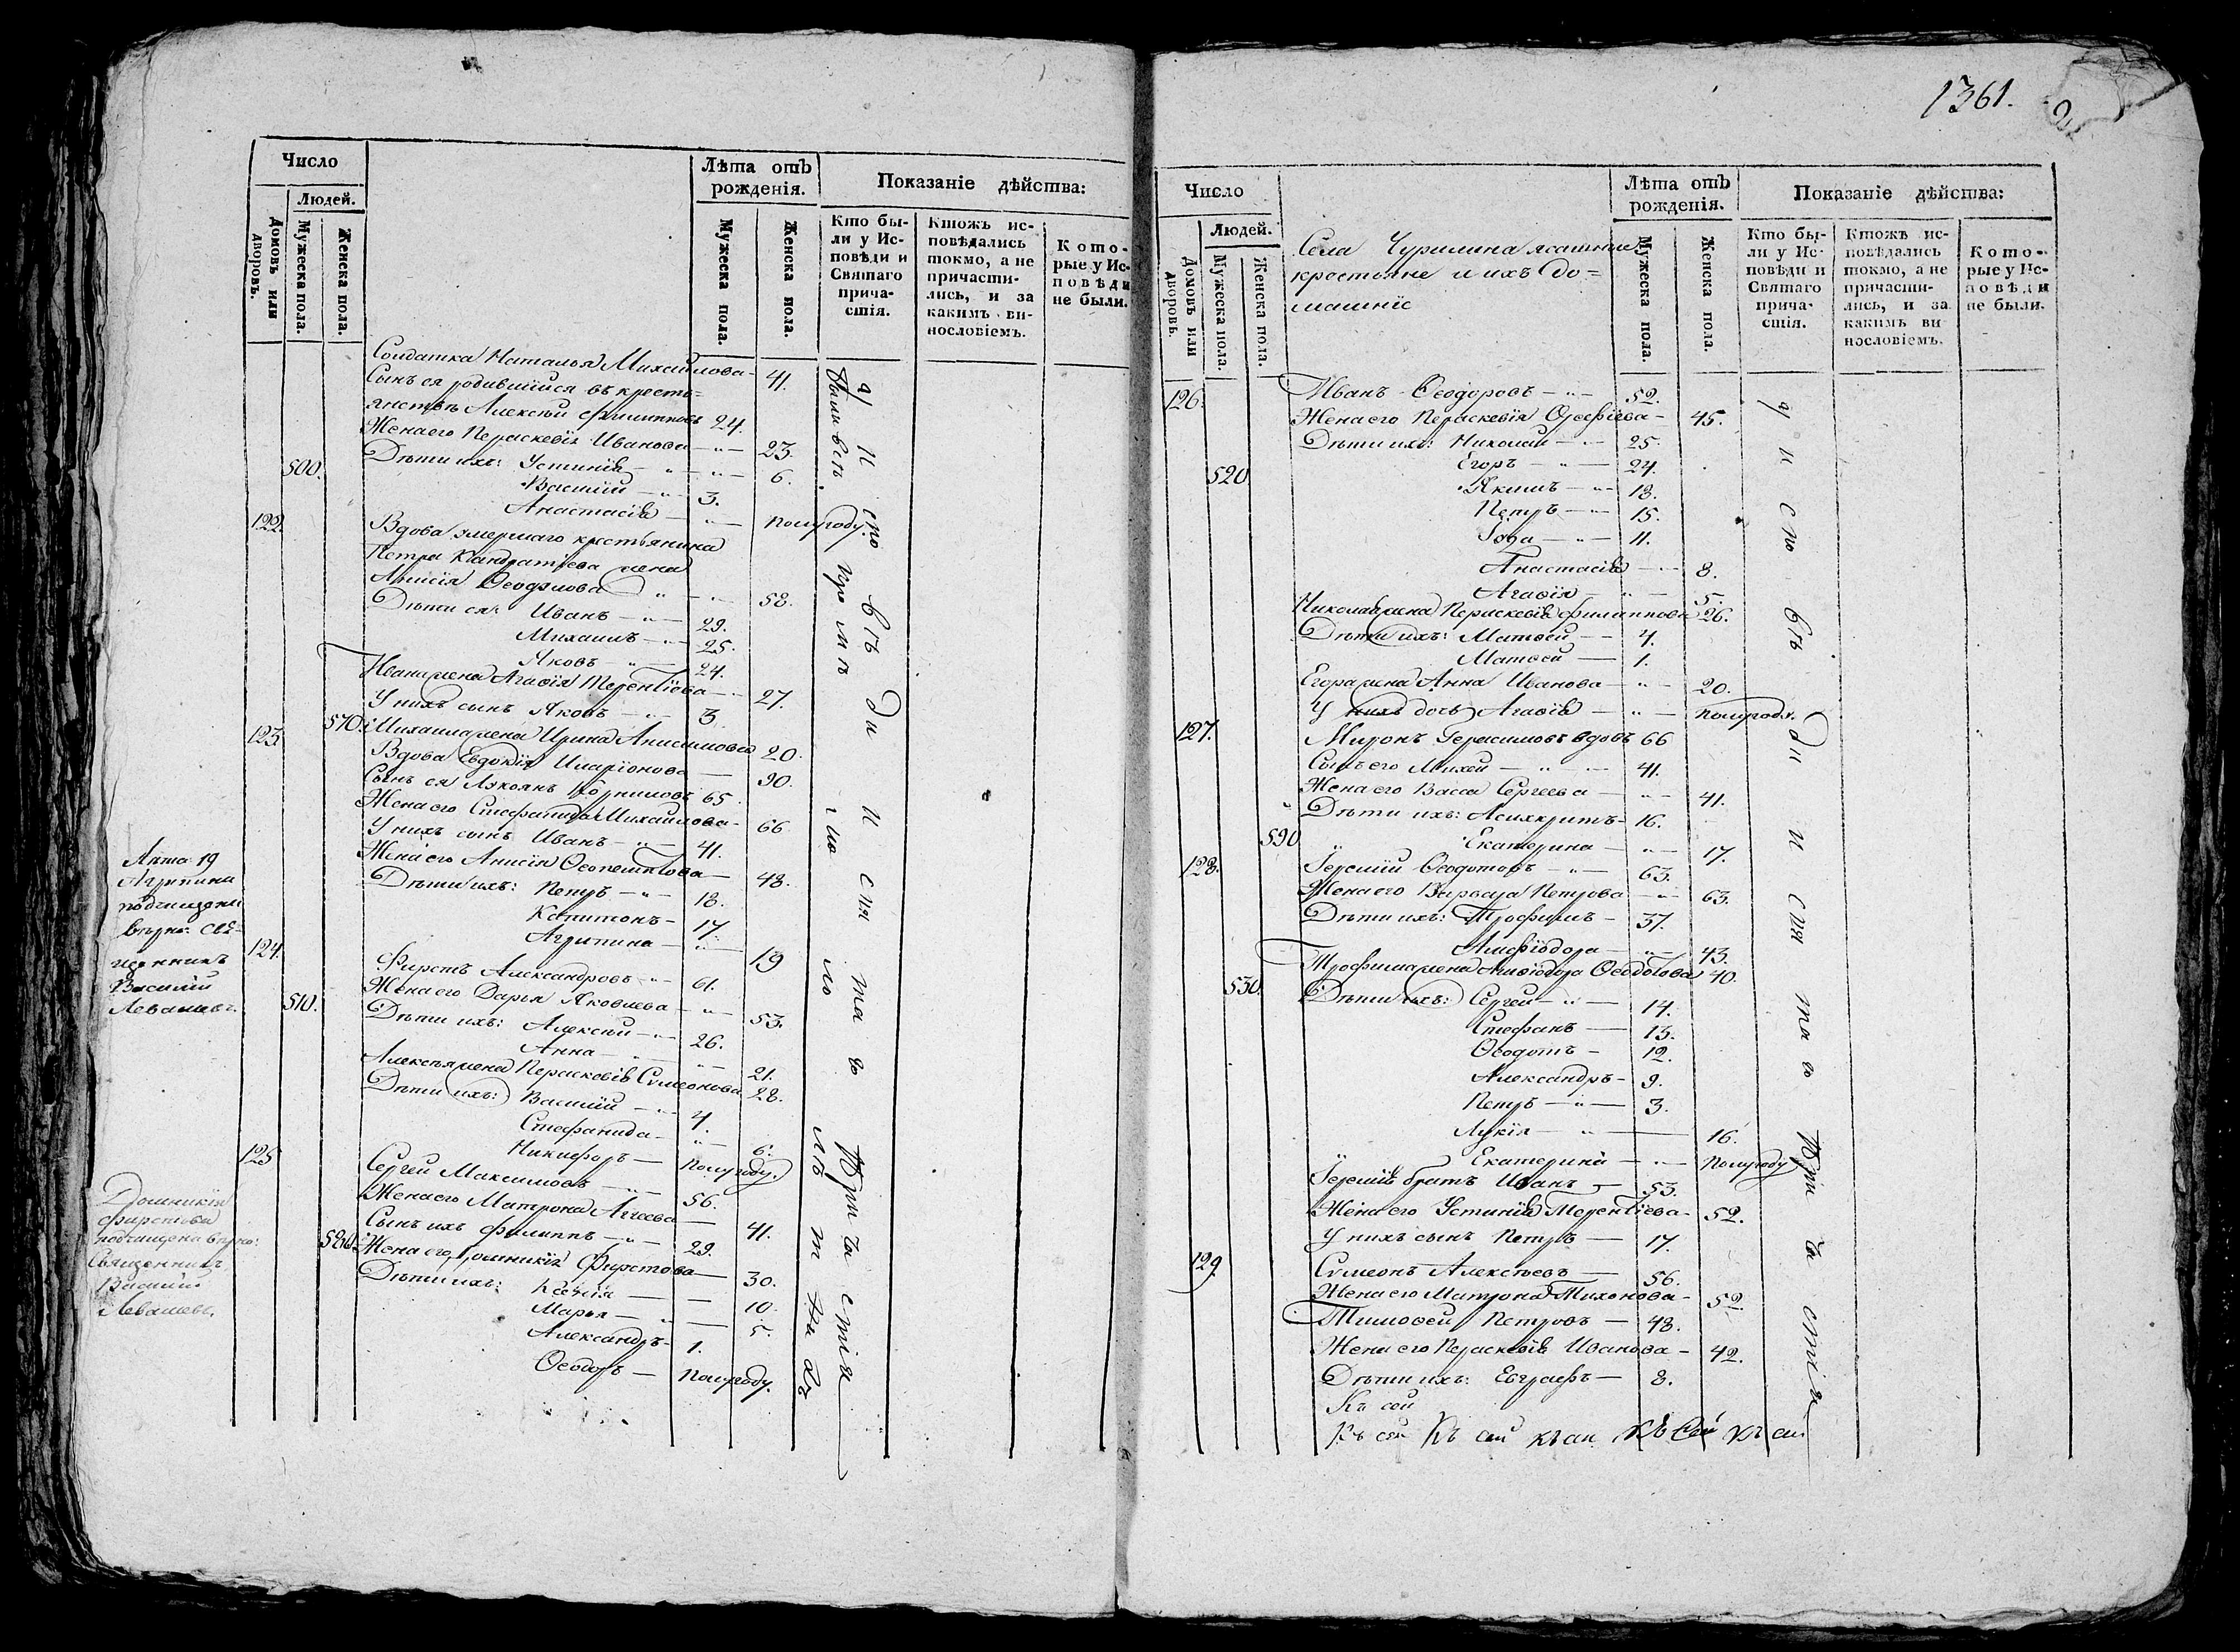 Число
Людей.
Домовъ или дворовъ.
Мужеска пола.
Женска пола.
Лѣта отъ рожденія.
Мужеска пола.
Женска пола.
Показаніе дѣйства:
Кто бы-
ли у Ис-
повѣди и
Святаго
прича-
стія.
Ктожъ ис-
повѣдались
токмо, а не
причасти-
лись, и за
какимъ ви-
нословіемъ.
Кото-
рые у Ис-
повѣди
не были.
Солдатка Наталья Михайлова - 41.
Сынъ ея родившійся въ кресть-
янствѣ Алексѣй Филипповъ 24.
Жена его Параскевія Иванова - 23.
500. Дѣти ихъ: Устинія - 6.
Василій - 3.
Анастасія - полугоду.
122. Вдова умершаго крестьянина
Петра Кандратьева жена
Анисія Ѳеодулова - 58.
Дѣти ея: Иванъ - 29.
Михаилъ - 25.
Яковъ - 24.
Ивана жена Агаѳія Терентіева - 27.
У нихъ сынъ Яковъ - 3
570. Михаила жена Ирина Анисимова 20.
123. Вдова Евдокія Иларіонова - 90.
Сынъ ея Лукоянъ Корниловъ 65
Жена его Стефанида Михайлова - 66
У нихъ сынъ Иванъ - 41.
Жена его Анисія Ѳеопемптова - 48.
Дѣти ихъ: Петръ - 18.
Капитонъ - 17
Агрипина - 19
124. Фирстъ Александровъ - 61.
510. Жена его Дарья Яковлева - 53.
Дѣти ихъ: Алексѣй - 26.
Анна - 21.
Алексѣя жена Параскевія Сѵмеонова 28.
Дѣти ихъ: Василій - 4.
Стефанида - 6.
Никифоръ - полугоду.
125 Сергей Максимовъ - 56.
Жена его Матрона Аггеева - 41.
Сынъ ихъ Филиппъ - 29.
580. Жена его Домникія Фирстова - 30.
Дѣти ихъ: Ксенія - 10.
Марья - 5.
Александръ - 1.
Ѳеодоръ - полугоду.
Лѣта 19
Агрипины
подчищены
вѣрно. Свя-
щенникъ
Василій
Левашевъ.
Домникія
Фирстова
подчищена вѣрно:
Священникъ
Василій
Левашевъ.
у Исповѣди и Святаго Причастія
1361.
Число
Людей.
Домовъ или дворовъ.
Мужеска пола.
Женска пола.
Села Чурилина ясашные
крестьяне и ихъ до=
машніе
Лѣта отъ рожденія.
Мужеска пола.
Женска пола.
Показаніе дѣйства:
Кто бы-
ли у Ис-
повѣди и
Святаго
прича-
стія.
Ктожъ ис-
повѣдались
токмо, а не
причасти-
лись, и за
какимъ ви
нословіемъ.
Кото-
рые у Ис-
повѣди
не были.
126. Иванъ Ѳеодоровъ - 52.
Жена его Параскевія Ерефіева - 45.
Дѣти ихъ: Николай - 25.
520 Егоръ - 24.
Якимъ - 18.
Петръ - 15.
Іона - 11.
Анастасія - 8.
Агаѳія - 5.
Николая жена Параскевія Филиппова 26.
Дѣти ихъ: Матѳей - 4.
Матѳей - 1.
Егора жена Анна Иванова - 20.
У нихъ дочь Агаѳія - полугоду.
127. Миронъ Герасимовъ вдовъ 66
Сынъ его Михей - 41.
Жена его Васса Сергеева - 41.
Дѣти ихъ: Асинкритъ - 16.
590 Екатерина - 17.
128. Іеремій Ѳеодотовъ - 63.
Жена его Варвара Петрова - 63.
Дѣти ихъ: Трофимъ - 37.
Минѳіодора - 43.
Трофима жена Минѳіодора Ѳеодотова 40.
530. Дѣти ихъ: Сергей - 14.
Стефанъ - 13.
Ѳеодотъ - 12.
Александръ - 9.
Петръ - 3.
Лукія - 16.
Екатерина - полугоду
Іереміи братъ Иванъ - 53.
Жена его Устинія Терентіева - 52.
У нихъ сынъ Петръ - 17.
129. Сѵмеонъ Алексѣевъ - 56.
Жена его Матрона Тихонова - 52.
Тимоѳей Петровъ - 48.
Жена его Параскевія Иванова - 42.
Дѣти ихъ: Евграфъ - 8.
Къ сей
Къ сей Къ сей Къ сей Къ сей
у Исповѣди и Святаго Причастія